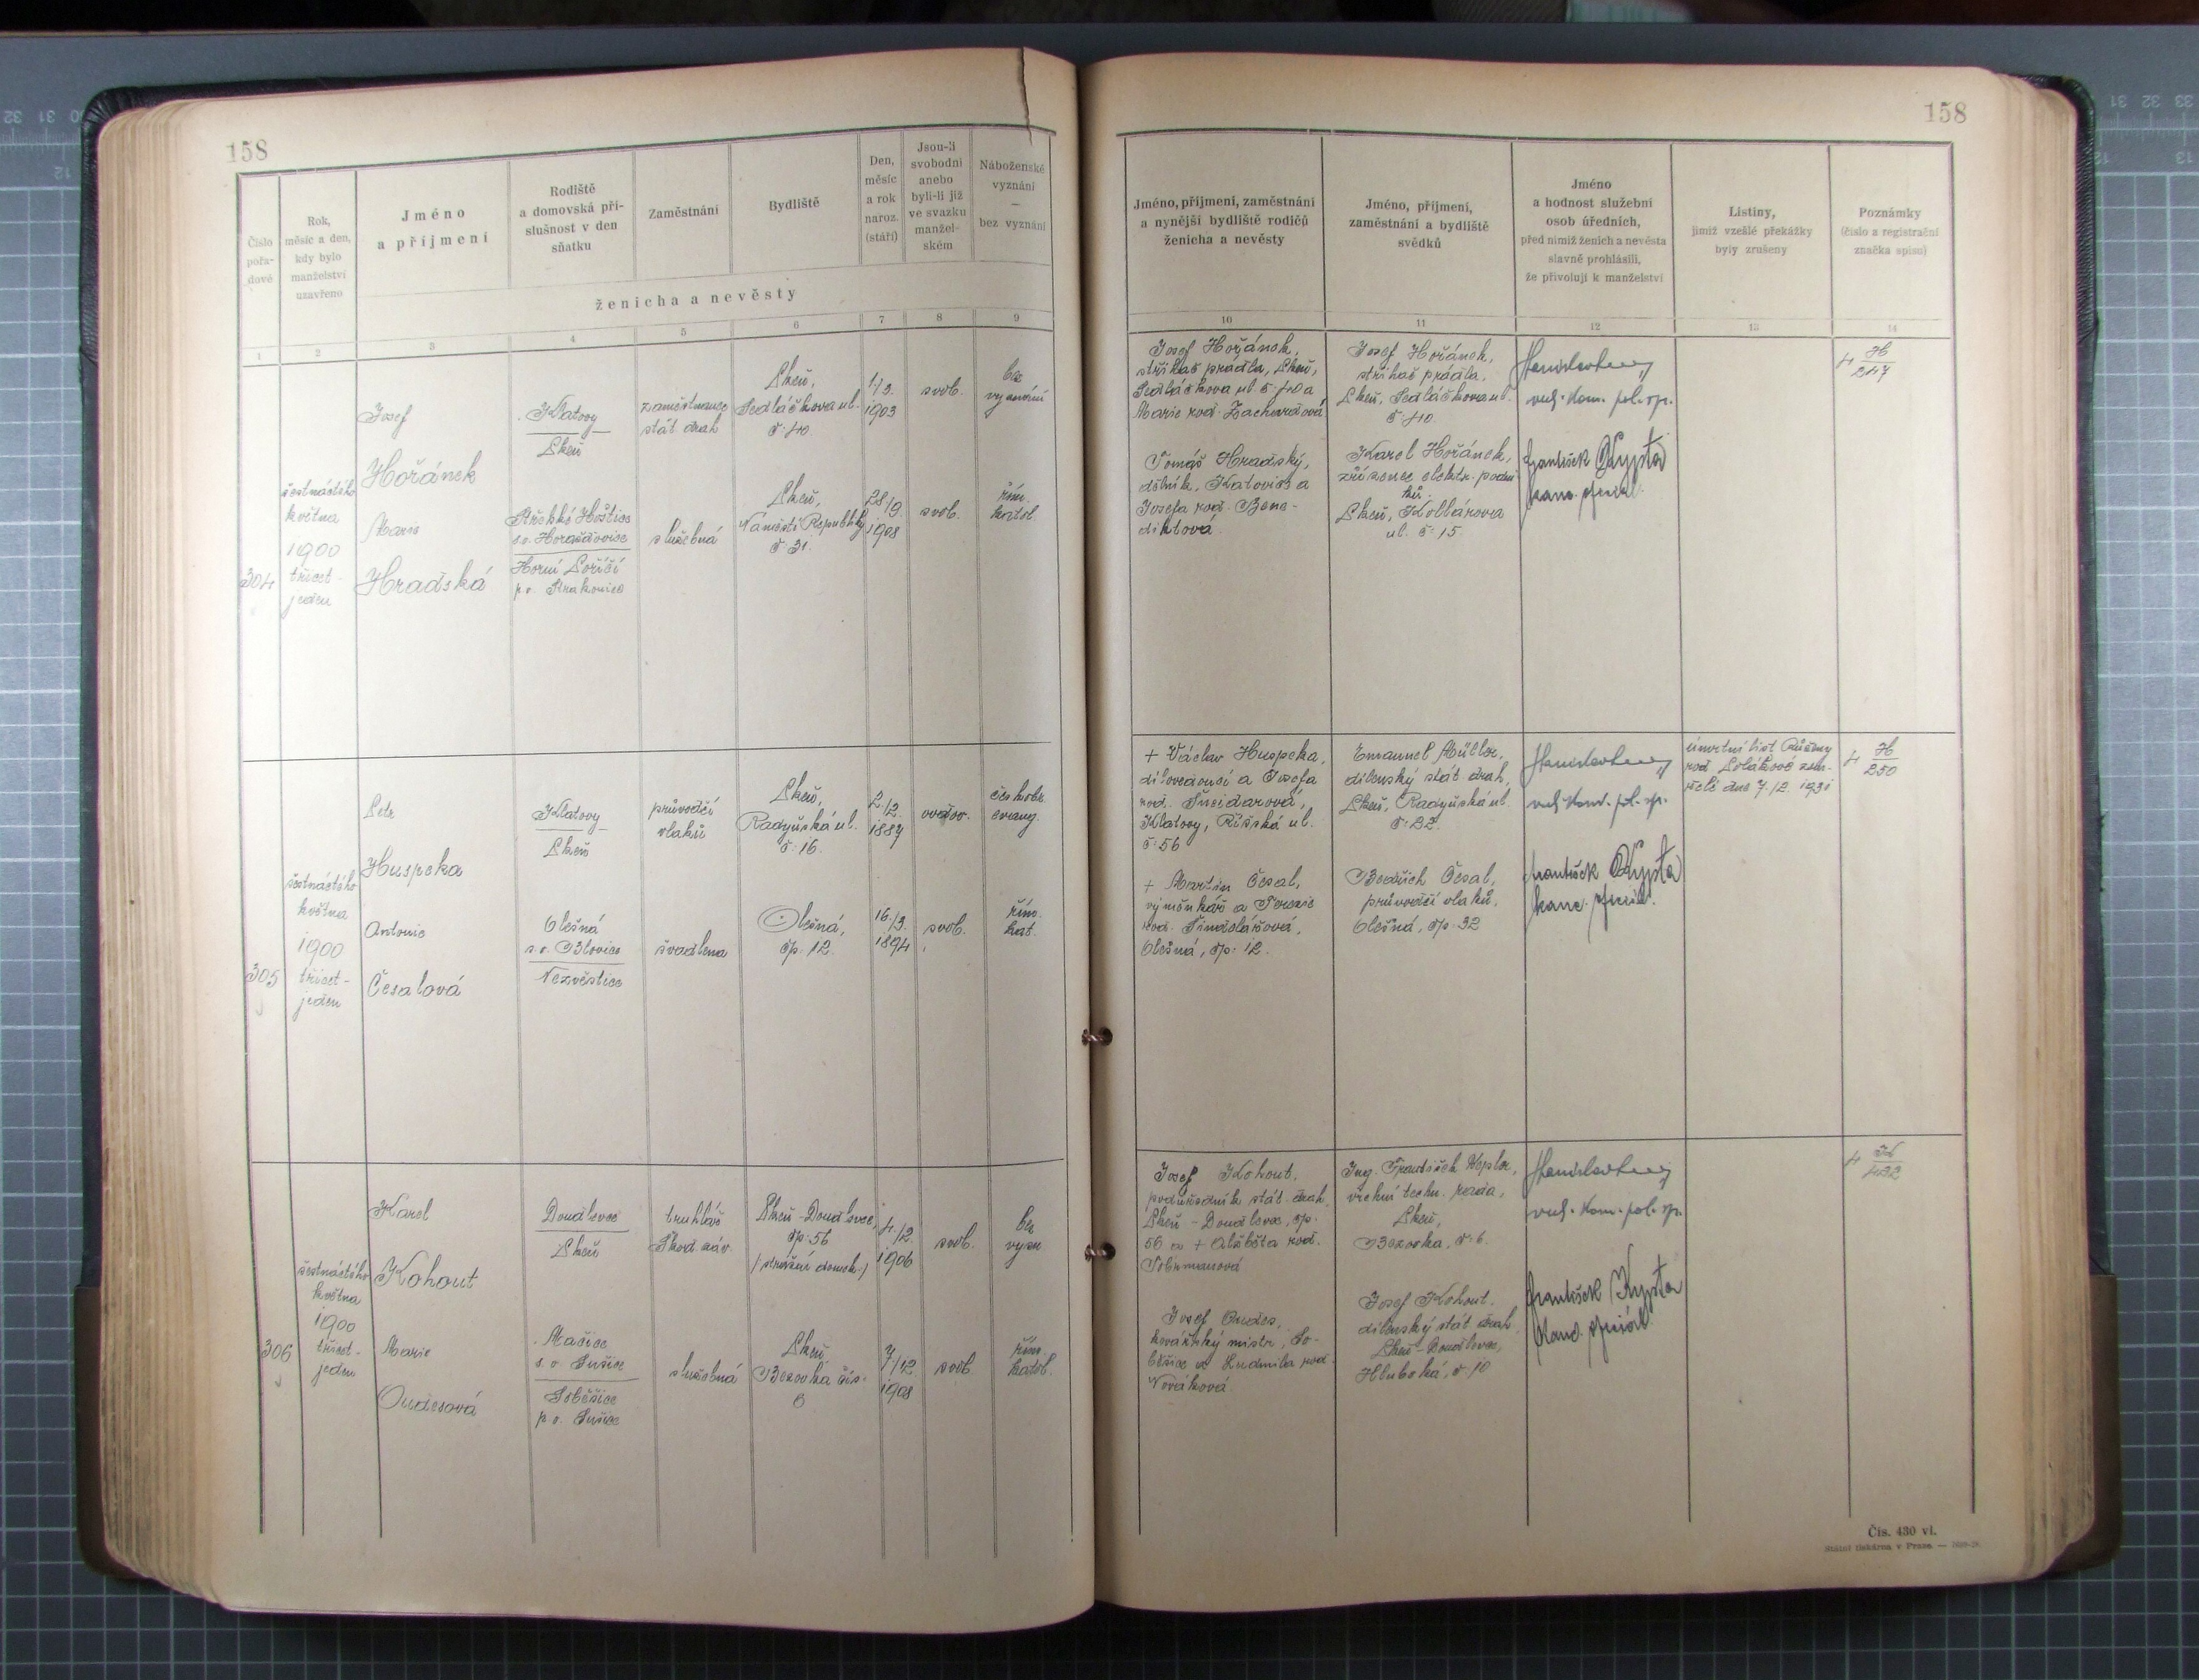 158
158
Číslo
pořa-
dové
Rok,
měsíc a den,
kdy bylo
manželství
uzavřeno
Jméno
a příjmení
Rodiště
a domovská pří-
slušnost v den
sňatku
Zaměstnání
Bydliště
Den,
měsíc
a rok
naroz.
(stáří)
Jsou-li
svobodni
anebo
byli-li již
ve svazku
manžel-
ském
Náboženské
vyznání
—
bez vyznání
ženicha a nevěsty
Jméno, příjmení, zaměstnání
a nynější bydliště rodičů
ženicha a nevěsty
Jméno, příjmení,
zaměstnání a bydliště
svědků
Jméno
a hodnost služební
osob úředních,
před nimiž ženich a nevěsta
slavně prohlásili,
že přivolují k manželství
Listiny,
jimiž vzešlé překážky
byly zrušeny
Poznámky
(číslo a registrační
značka spisu)
1 2 3 4 5 6 7 8 9
10 11 12 13 14
304
šestnáctého
května
1900
třicet-
jeden
Josef
Hořánek
Klatovy
Plzeň
zaměstnanec
stát drah
Plzeň,
Sedláčkova ul.
č. 40
1/3.
1903
svob.
bez
vyznání
Marie
Hradská
Střelské Hoštice
s.o. Horažďovice
Horní Poříčí
p.o. Strakonice
služebná
Plzeň,
Náměstí Republiky
č. 31.
28/9.
1908
svob.
řím.
katol.
Josef Hořánek,
střihač prádla, Plzeň,
Sedláčkova ul. č. 40 a
Marie rod.
Tomáš Hradský,
dělník, Katovice a
Josefa rod. Bene-
diktová.
Josef Hořánek,
střihač prádla,
Plzeň, Sedláčkova ul.
č. 40.
Karel Hořánek,
zřízenec elektr. podni
ků.
Plzeň, Kollárova
ul. č. 15.
vrch. kom. pol. sp.
František Kypta
kanc. oficiál.
4 H
247
305
šestnáctého
května
1900
třicet-
jeden
Petr
Huspeka
Klatovy
Plzeň
průvodčí
vlaků
Plzeň,
Radyňská ul.
č. 16.
2./2.
1887
ovdov.
českobr.
evang.
Antonie
Česalová
Olešná
s.o. Blovice
Nezvěstice
švadlena
Olešná,
čp. 12.
16./3.
1894
svob.
řím.
kat.
+ Václav Huspeka,
dílovedoucí a Josefa
rod. Šneidarová,
Klatovy, Říšská ul.
č. 56
+ Martin Česal,
výměnkář a Terezie
rod. Šindelářová,
Olešná, čp. 12.
Emanuel Müller,
dílenský stát drah,
Plzeň, Radyňská ul.
č. 22.
Bedřich Česal,
průvodčí vlaků,
Olešná, čp. 32
vrch. kom. pol. sp.
František Kypta
kanc. oficiál.
úmrtní list Růženy
rod. Polákové zem-
řelé dne 7./2. 1931
4 H
250
306
šestnáctého
května
1900
třicet-
jeden
Karel
Kohout
Doudlevce
Plzeň
truhlář
Škod. záv.
Plzeň-Doudlevce,
čp. 56
/strážní domek/
4./2.
1906
svob.
bez
vyzn
Marie
Oudesová
Mačice
s.o. Sušice
Soběšice
p.o. Sušice
služebná
Plzeň
Bezovka čís.
6
7/12
1908
svob.
řím.
katol.
Josef Kohout,
podúředník stát. drah
Plzeň-Doudlevce, čp.
56 a + Alžběta rod.
Josef Oudes,
kovářský mistr, So-
běšice a Ludmila rod.
Nováková.
Ing. František Kepler,
vrchní techn. rada,
Plzeň,
Bezovka, č. 6.
Josef Kohout,
dílenský stát drah
Plzeň-Doudlevce,
Hluboká, č. 10
vrch. kom. pol. sp.
František Kypta
kanc. oficiál
4 K
422
Čís. 430 vl.
Státní tiskárna v Praze. —